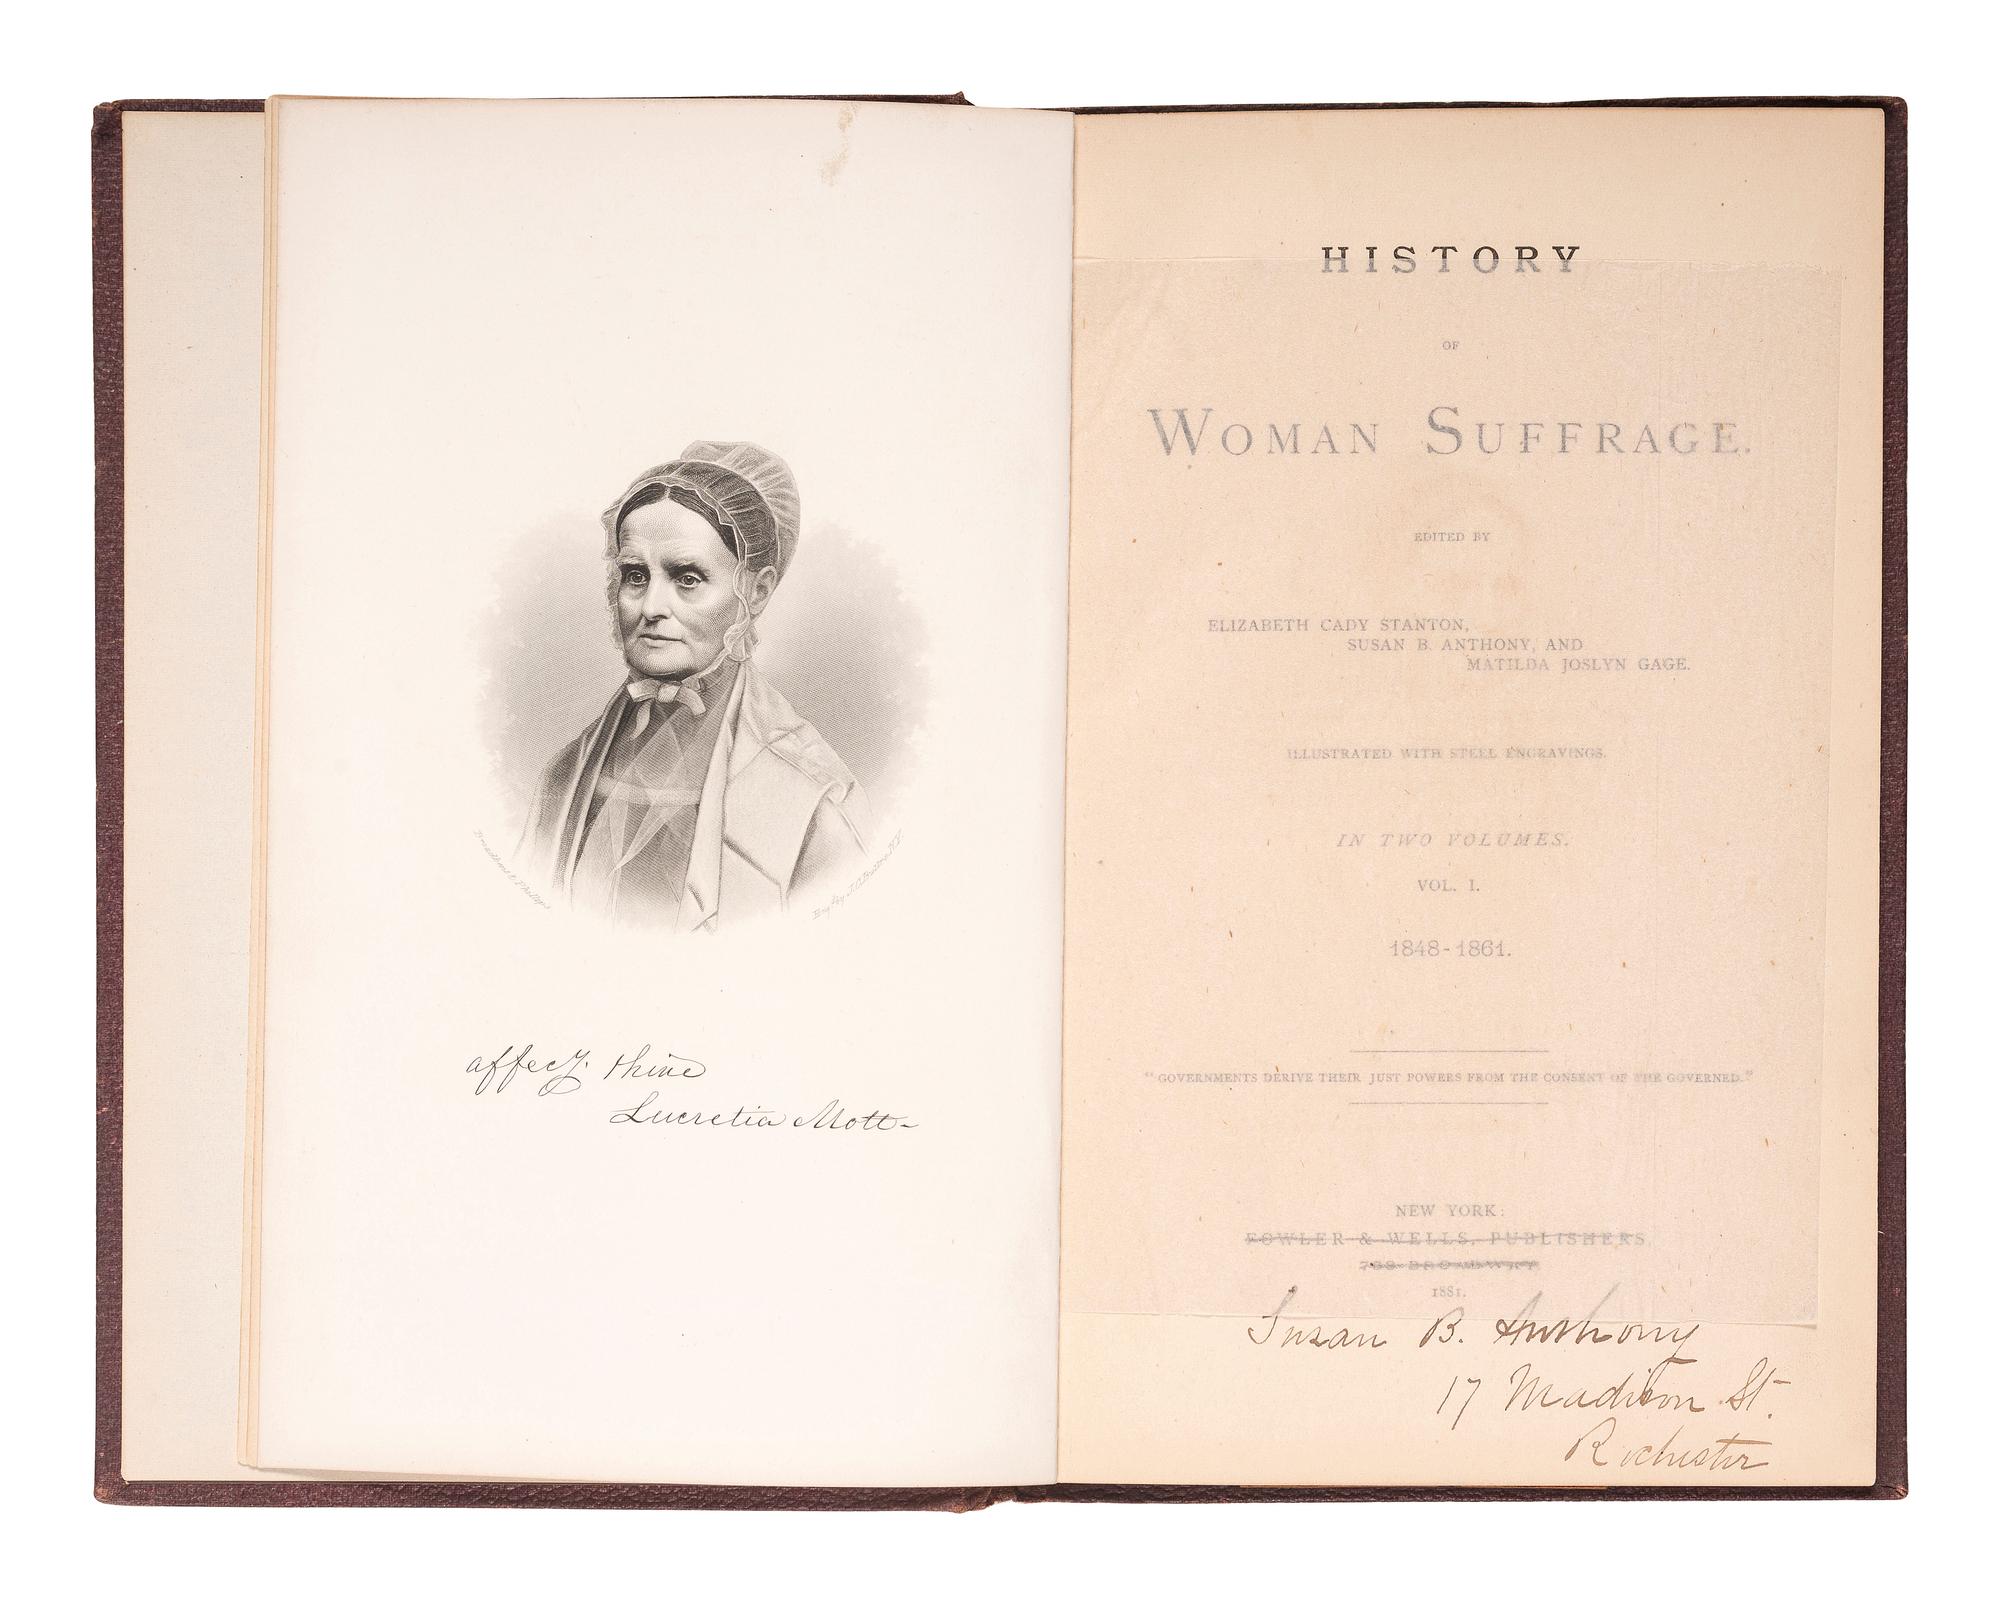 Broadbent & Phillips
Eng'd by J.C. Buttre, N.Y.
affecy. thine
Lucretia Mott
HISTORY
OF
WOMAN SUFFRAGE.
EDITED BY
ELIZABETH CADY STANTON,
SUSAN B. ANTHONY, AND
MATILDA JOSLYN GAGE.
ILLUSTRATED WITH STEEL ENGRAVINGS.
IN TWO VOLUMES.
VOL. I.
1848-1861.
"GOVERNMENTS DERIVE THEIR JUST POWERS FROM THE CONSENT OF THE GOVERNED."
NEW YORK:
FOWLER & WELLS, PUBLISHERS,
BROADWAY
1881.
Susan B. Anthony
17 Madison St.
Rochester